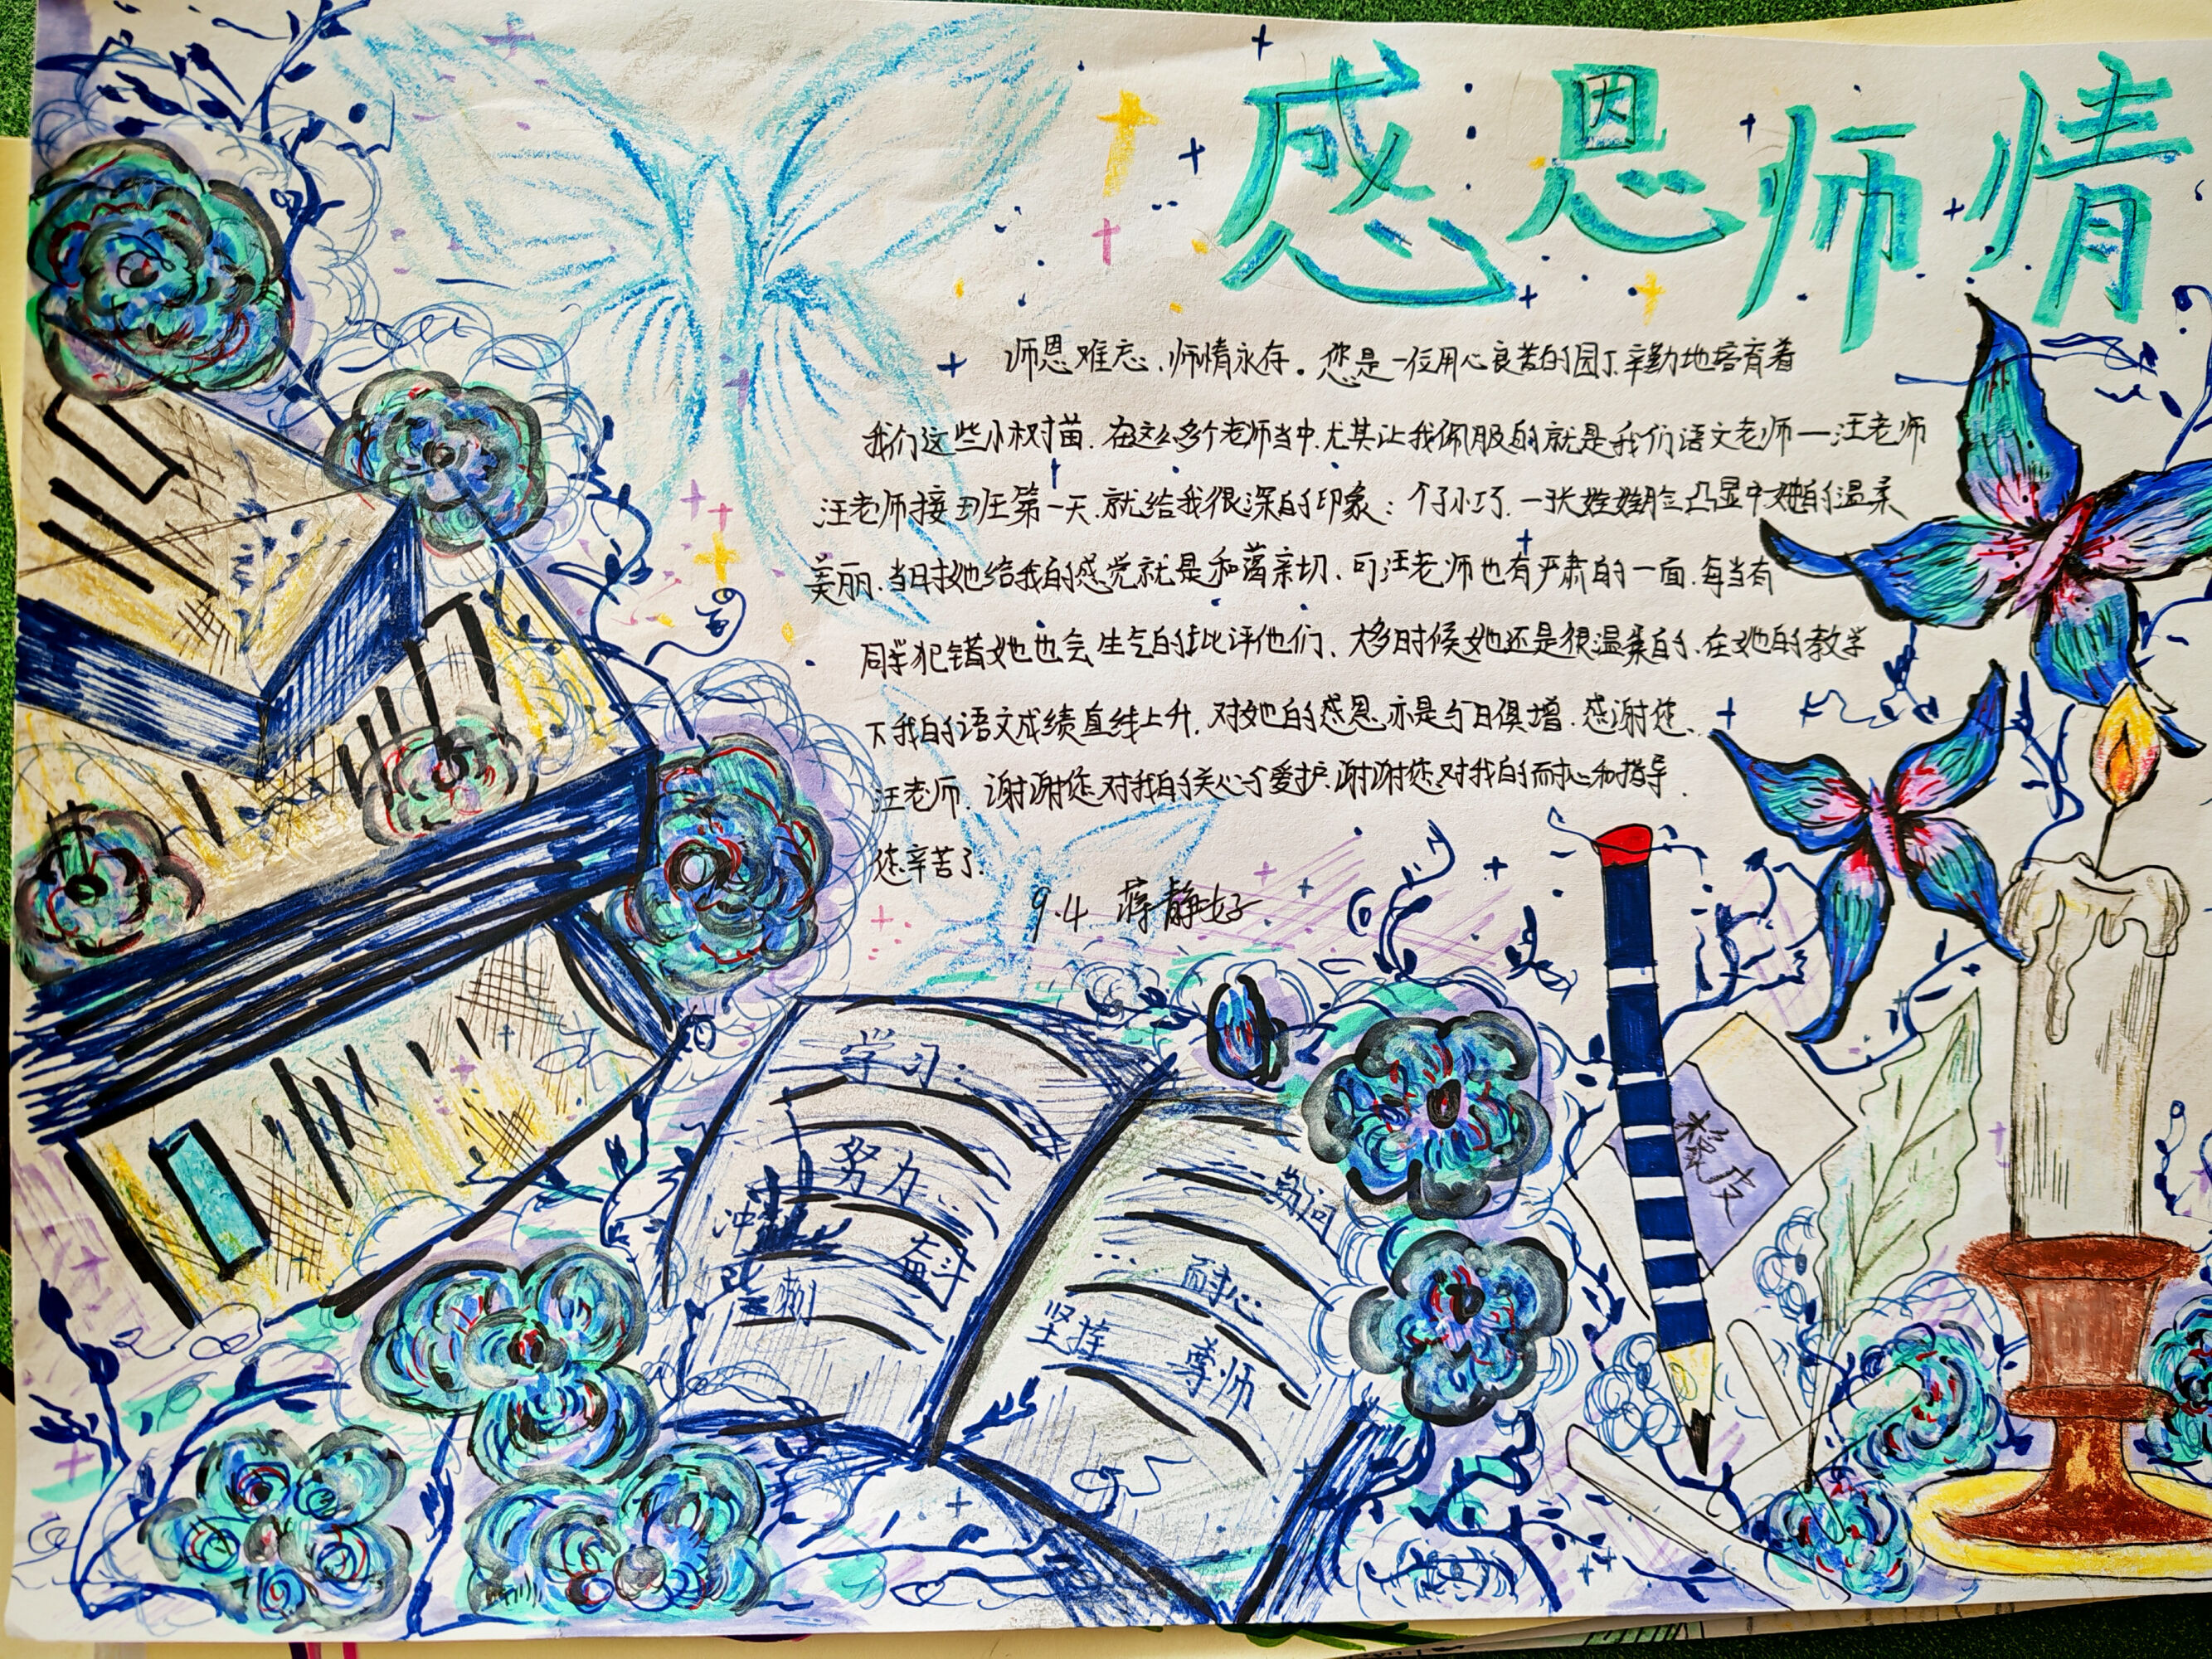 感恩师情
师恩难忘，师情永存。您是一位用心良苦的园丁辛勤地培育着
我们这些小树苗.在这么多个老师当中.尤其让我佩服的就是我们语文老师—汪老师
汪老师接班第一天.就给我很深的印象：个子小巧.一张娃娃脸凸显中她的温柔
美丽.当时她给我的感觉就是和蔼亲切.可汪老师也有严肃的一面.每当有
同学犯错她也会生气的批评他们.大多时候她还是很温柔的.在她的教学
下我的语文成绩直线上升.对她的感恩亦是与日俱增.感谢您、
汪老师.谢谢您对我的关心与爱护.谢谢您对我的耐心和指导.
您辛苦了.
9.4 蒋静好
学习
努力
冲刺
奋斗
勤问
耐心
坚持
尊师
橡皮